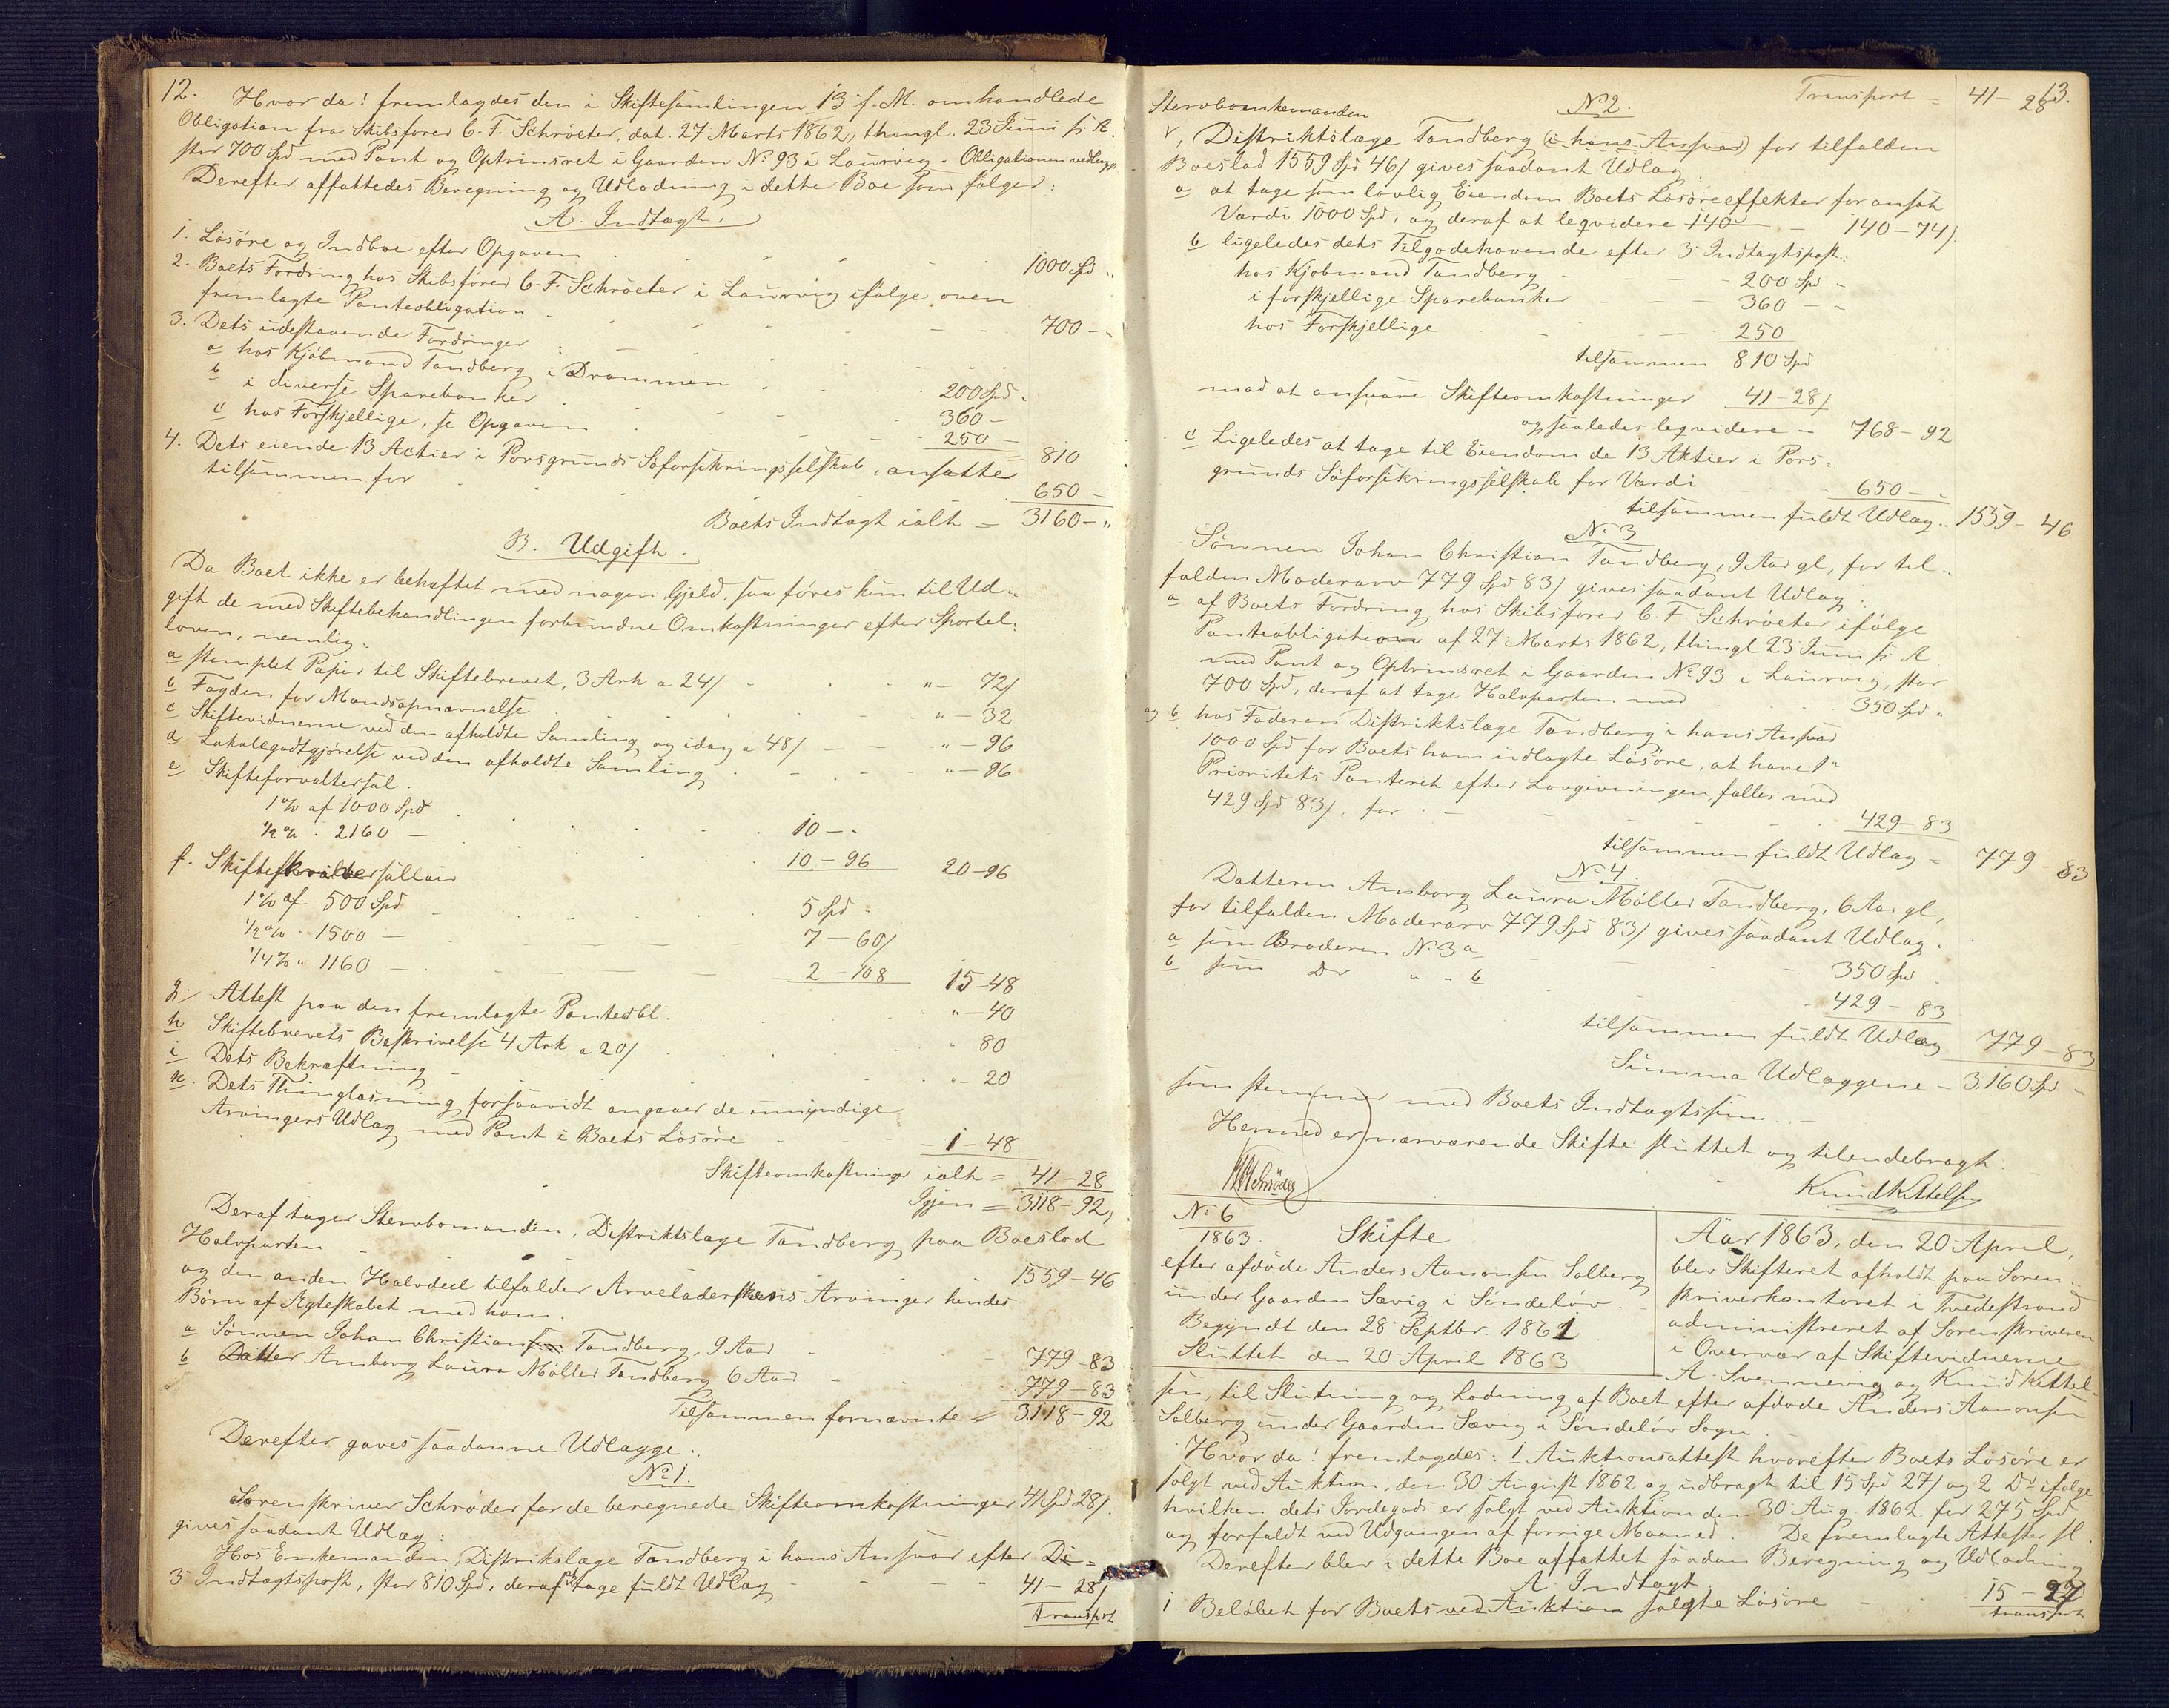 12.
Hvor da! fremlagdes den i Skiftesamlingen 13 f. M. omhandlede
Obligation fra Skibsfører C. F. Schröeter, dat. 27 Marts 1862, thingl. 23 Juni s. A.
stor 700 Spd med Pant og Optrinsret i Gaarden No 93 i Laurvig. Obligationen vedlagt
Derefter affattedes Beregning og Udlodning i dette Boe som følger:
A. Indtægt.
1. Løsøre og Indboe efter Opgaven 1000 Spd "
2. Boets Fordring hos Skibsfører C. F. Schröeter i Laurvig ifølge oven
fremlagte Panteobligation 700 - "
3. Dets udestaaende Fordringer:
a hos Kjøbmand Tandberg i Drammen 200 Spd "
b i diverse Sparebanker 360 -
c hos Forskjellige, se Opgaven 250 - 810
4. Dets eiende 13 Actier i Porsgrunds Søforsikringsselskab, ansatte
tilsammen for 650 -
Boets Indtægt ialt = 3160 - "
B. Udgift.
Da Boet ikke er behæftet med nogen Gjeld, saa føres kun til Ud-
gift de med Skiftebehandlingen forbundne Omkostninger efter Sportel-
loven, nemlig:
a stemplet Papir til Skiftebrevet, 3 Ark a 24/ " - 72/
b Fogden for Mandsopnævnelse " - 32
c Skiftevidnerne ved den afholdte Samling og idag a 48/ " - 96
d Lokalegodtgjørelse ved den afholdte Samling " - 96
e Skifteforvaltersal.
1% af 1000 Spd 10 - "
1/2% " 2160 - 10 - 96 20 - 96
f. Skiftesallair
1% af 500 Spd 5 Spd "
1/2% " 1500 - 7 - 60/
1/4% " 1160 - 2 - 108 15 - 48
g. Attest paa den fremlagte Panteobl. " - 40
h Skiftebrevets Beskrivelse 4 Ark a 20/ " 80
i Dets Bekræftning " - 20
k. Dets Thinglæsning forsaavidt angaaer de umyndige
Arvingers Udlæg med Pant i Boets Løsøre - 1 - 48
Skifteomkostninger ialt = 41 - 28
Igjen = 3118 - 92,
Deraf tager Stervbomanden, Distriktslæge Tandberg paa Boeslod
Halvparten 1559 - 46
og den anden Halvdeel tilfalder Arveladerskens Arvinger hendes
Børn af Ægteskabet med ham.
a Sønnen Johan Christian Tandberg, 9 Aar 779 - 83
b Datter Amborg Laura Møller Tandberg 6 Aar 779 - 83
Tilsammen fornævnte = 3118 - 92
Derefter gaves saadanne Udlægge:
No 1.
Sorenskriver Schrøder for de beregnede Skifteomkostninger 41 Spd 28/.
gives saadant Udlæg:
Hos Enkemanden, Distrikslæge Tandberg i hans Ansvar efter
3 Indtægtspost, stor 810 Spd, deraf tage fuldt Udlæg 41 - 28/
Transport
13.
Transport = 41 - 28
Stervboenkemanden No 2.
Distriktslæge Tandberg (i hans Ansvar) for tilfalden
Boeslod 1559 Spd 46/ gives saadant Udlæg:
a at tage som lovlig Eiendom Boets Løsøreeffekter for ansat
Værdi 1000 Spd, og deraf at leqvidere 140 - 140 - 74/
b ligeledes dets Tilgodehavende efter 3 Indtægtspost:
hos Kjøbmand Tandberg - 200 Spd "
i forskjellige Sparebanker 360 -
hos Forskjellige 250
tilsammen 810 Spd
mod at ansvare Skifteomkostninger 41 - 28/
og saaledes leqvidere - 768 - 92
c Ligeledes at tage til Eiendom de 13 Aktier i Pors-
grunds Søforsikringsselskab for Værdi 650 - "
tilsammen fuldt Udlæg 1559 - 46
No 3
Sønnen Johan Christian Tandberg, 9 Aar gl, for til-
falden Moderarv 779 Spd 83/ gives saadant Udlæg:
a af Boets Fordring hos Skibsfører C. F. Schröeter ifølge
Panteobligation af 27 Marts 1862, thingl 23 Juni s. A
med Pant og Optrinsret i Gaarden No 93 i Laurvig, stor
700 Spd, deraf at tage Halvparten med 350 Spd "
og b hos Faderen Distriktslæge Tandberg i hans Ansvar
1000 Spd for Boets ham udlagte Løsøre, at have 1ste
Prioritets Panteret efter Lovgivningen fælles med
429 Spd 83/, for 429 - 83
tilsammen fuldt Udlæg = 779 - 83
No 4.
Datteren Amborg Laura Møller Tandberg, 6 Aar gl,
for tilfalden Moderarv 779 Spd 83/ gives saadant Udlæg.
a som Broderen No 3 a 350 Spd
b som Do " " b 429 - 83
tilsammen fuldt Udlæg 779 - 83
Summa Udlæggene - 3160 Spd "
som stemmer med Boets Indtægtssum.
Hermed er nærværende Skifte sluttet og tilendebragt.
Schrøder
Knud Kittelsen
No 6
1863. Skifte
efter afdøde Anders Aanonsen Solberg
under Gaarden Sævig i Søndeløv.
Begyndt den 28 Septbr. 1861
Sluttet den 20 April 1863
Aar 1863, den 20 April,
blev Skifteret afholdt paa Soren-
skriverkontoret i Tvedestrand
administreret af Sorenskriveren
i Overvær af Skiftevidnerne
A. Svennevig og Knud Kittel-
sen, til Slutning og Lodning af Boet efter afdøde Anders Aanonsen
Solberg under Gaarden Sævig i Søndeløv Sogn.
Hvor da! fremlagdes: 1 Auktionsattest hvorefter Boets Løsøre er
solgt ved Auktion, den 30 August 1862 og udbragt til 15 Spd 27/ og 2 Do ifølge
hvilken dets Jordegods er solgt ved Auktion den 30 Aug 1862 for 275 Spd
og forfaldt ved Udgangen af forrige Maaned. De fremlagte Attester fl.
Derefter blev i dette Boe affattet saadan Beregning og Udlodning
A. Indtægt
1. Beløbet for Boets ved Auktion solgte Løsøre 15 - 27
transport